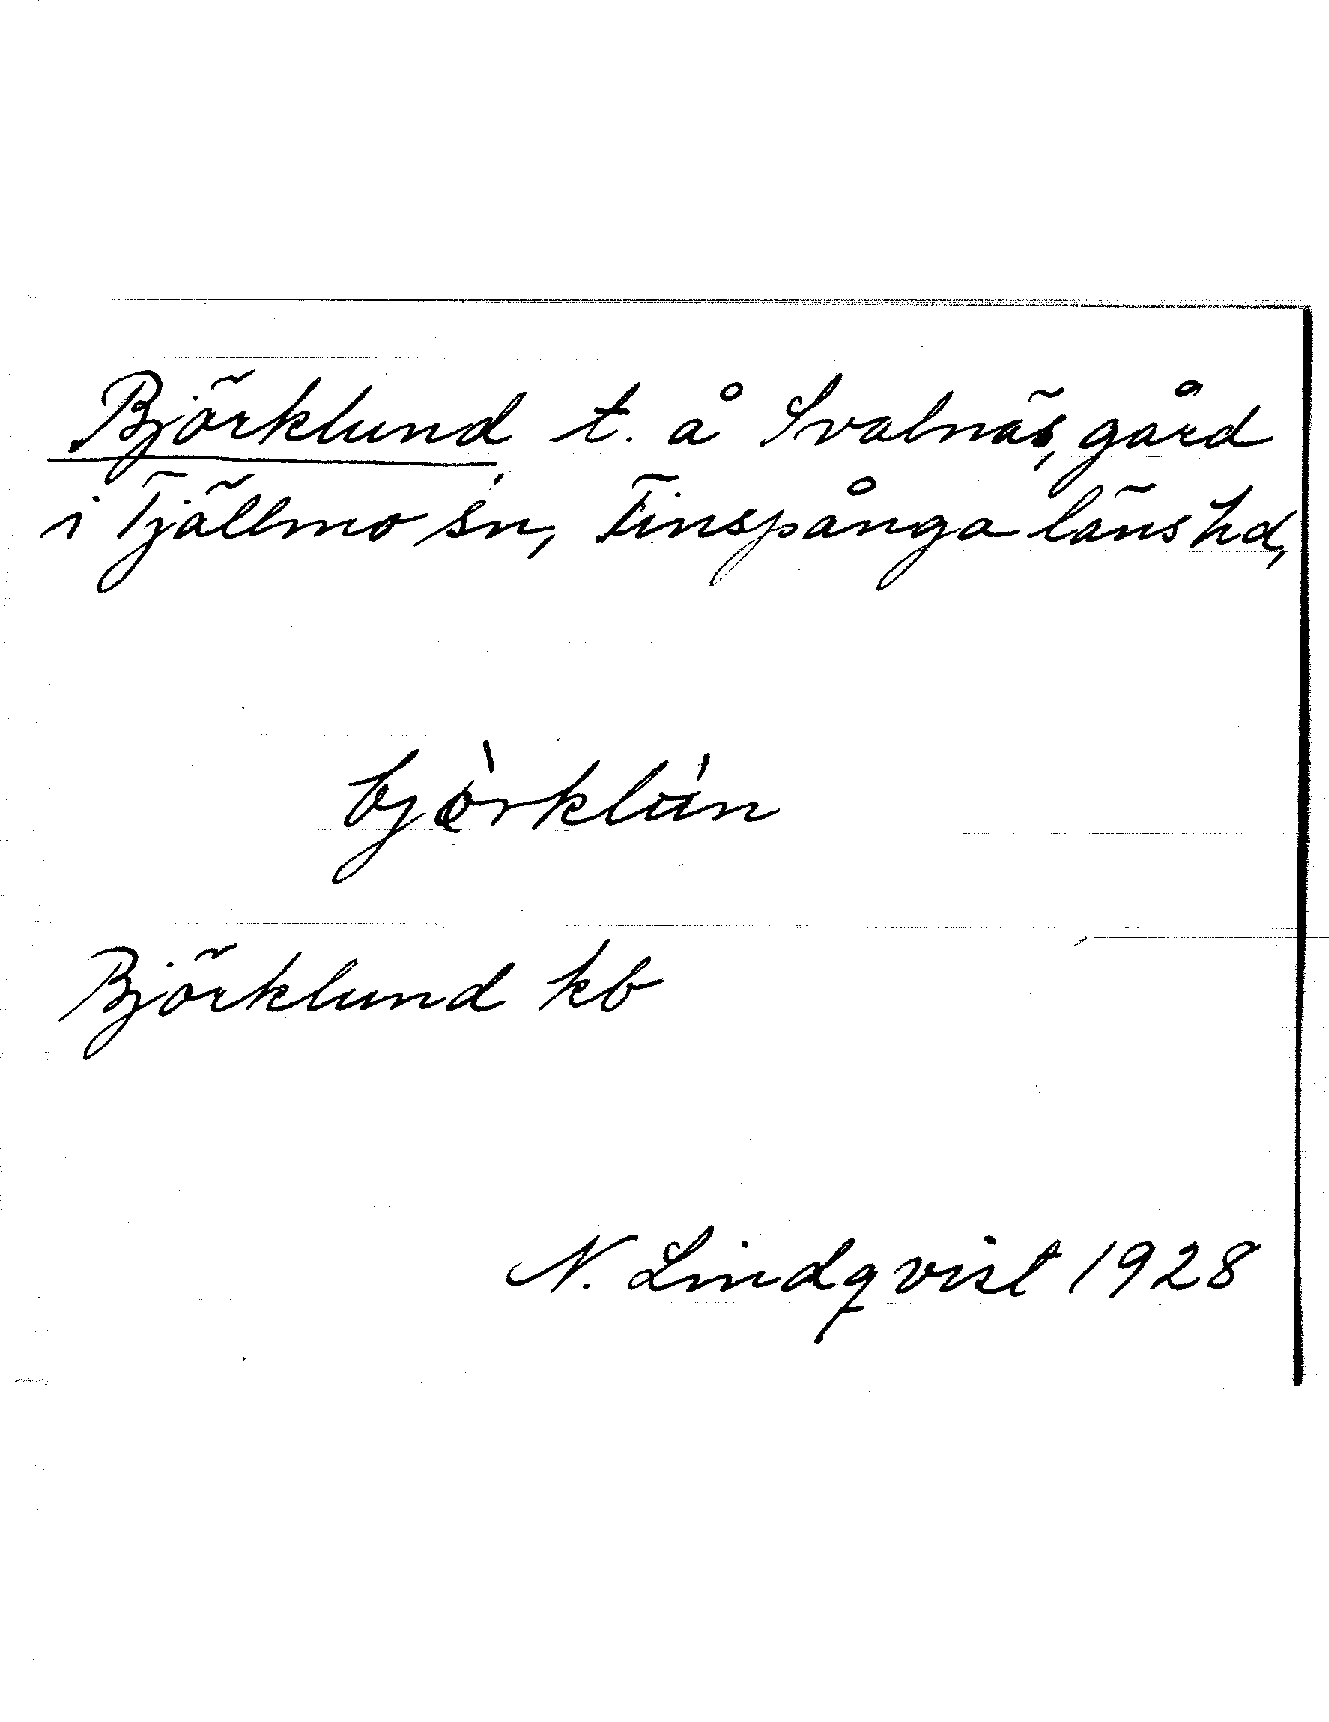 Björklund t. å Svalnäs, gård
i Tjällmo sn, Finspånga läns hd,
bjö̀rklún
Björklund kb
N. Lindqvist 1928